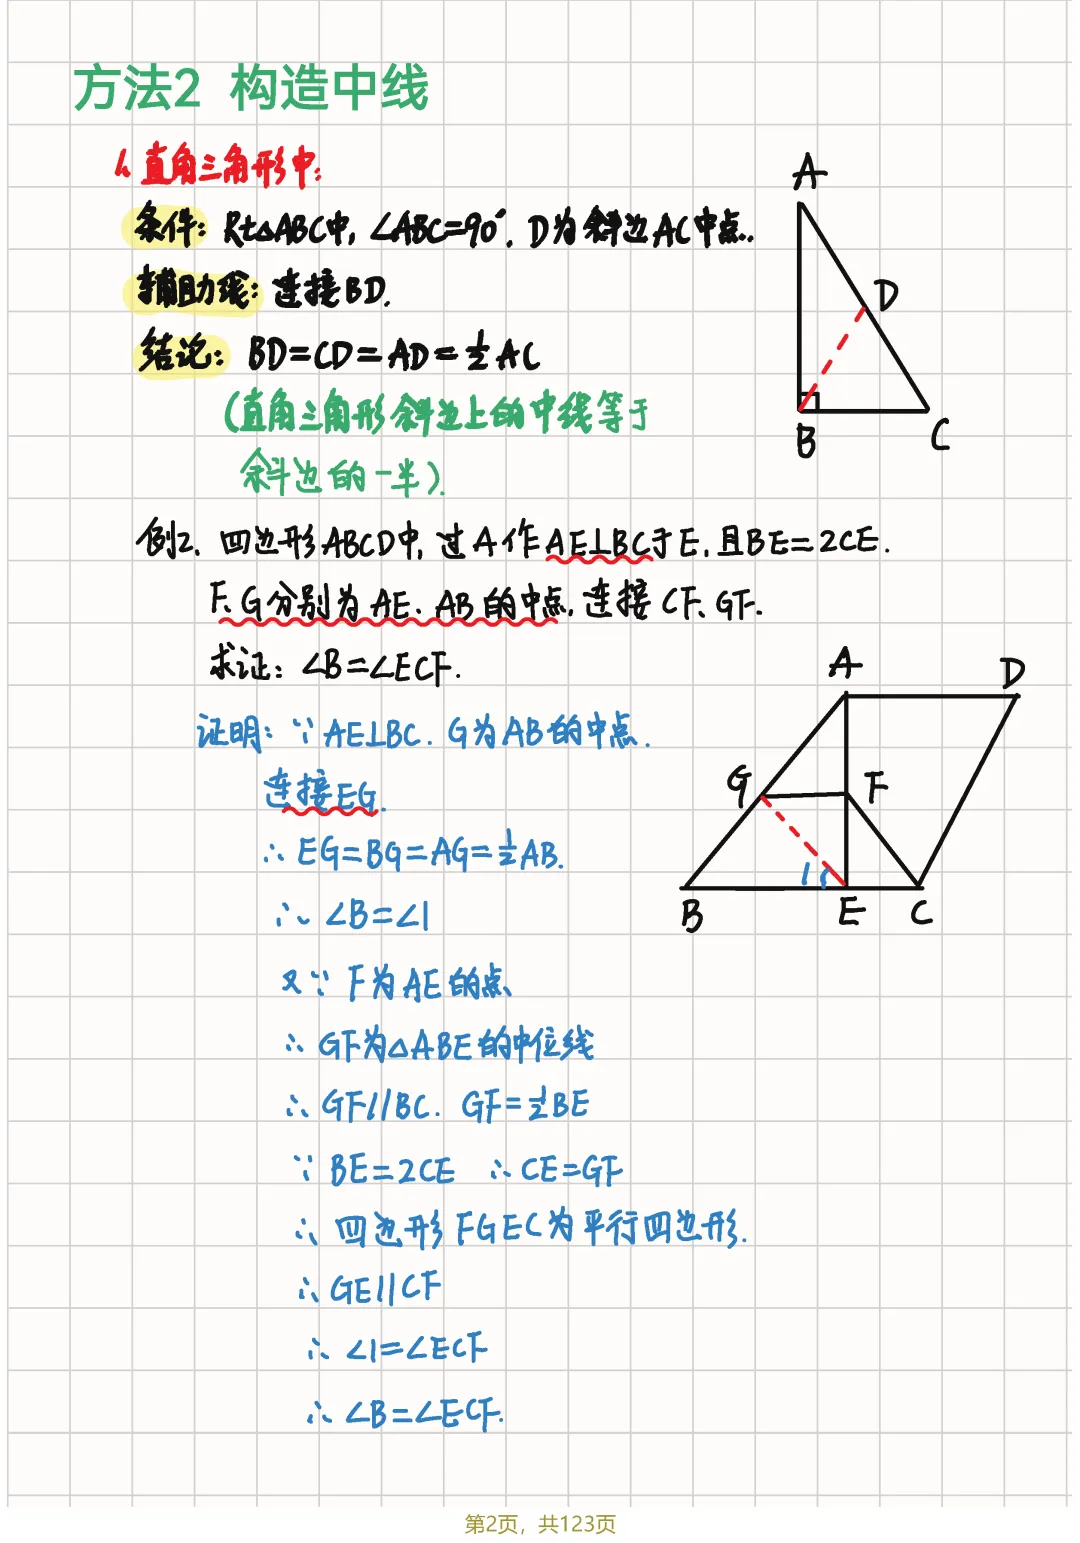 方法2 构造中线
1、直角三角形中:
条件: Rt△ABC中, ∠ABC=90°. D为斜边AC中点.
辅助线: 连接BD.
结论: BD=CD=AD=½AC
(直角三角形斜边上的中线等于
斜边的一半).
A
D
B
C
例2. 四边形ABCD中, 过A作AE⊥BC于E, 且BE=2CE.
F、G分别为AE、AB的中点, 连接CF、GF.
求证: ∠B=∠ECF.
A
D
G
F
1
B
E
C
证明: ∵AE⊥BC. G为AB的中点.
连接EG.
∴EG=BG=AG=½AB.
∴∠B=∠1
又∵F为AE的点
∴GF为△ABE的中位线
∴GF//BC. GF=½BE
∵BE=2CE ∴CE=GF
∴四边形FGEC为平行四边形.
∴GE//CF
∴∠1=∠ECF
∴∠B=∠ECF.
第2页，共123页